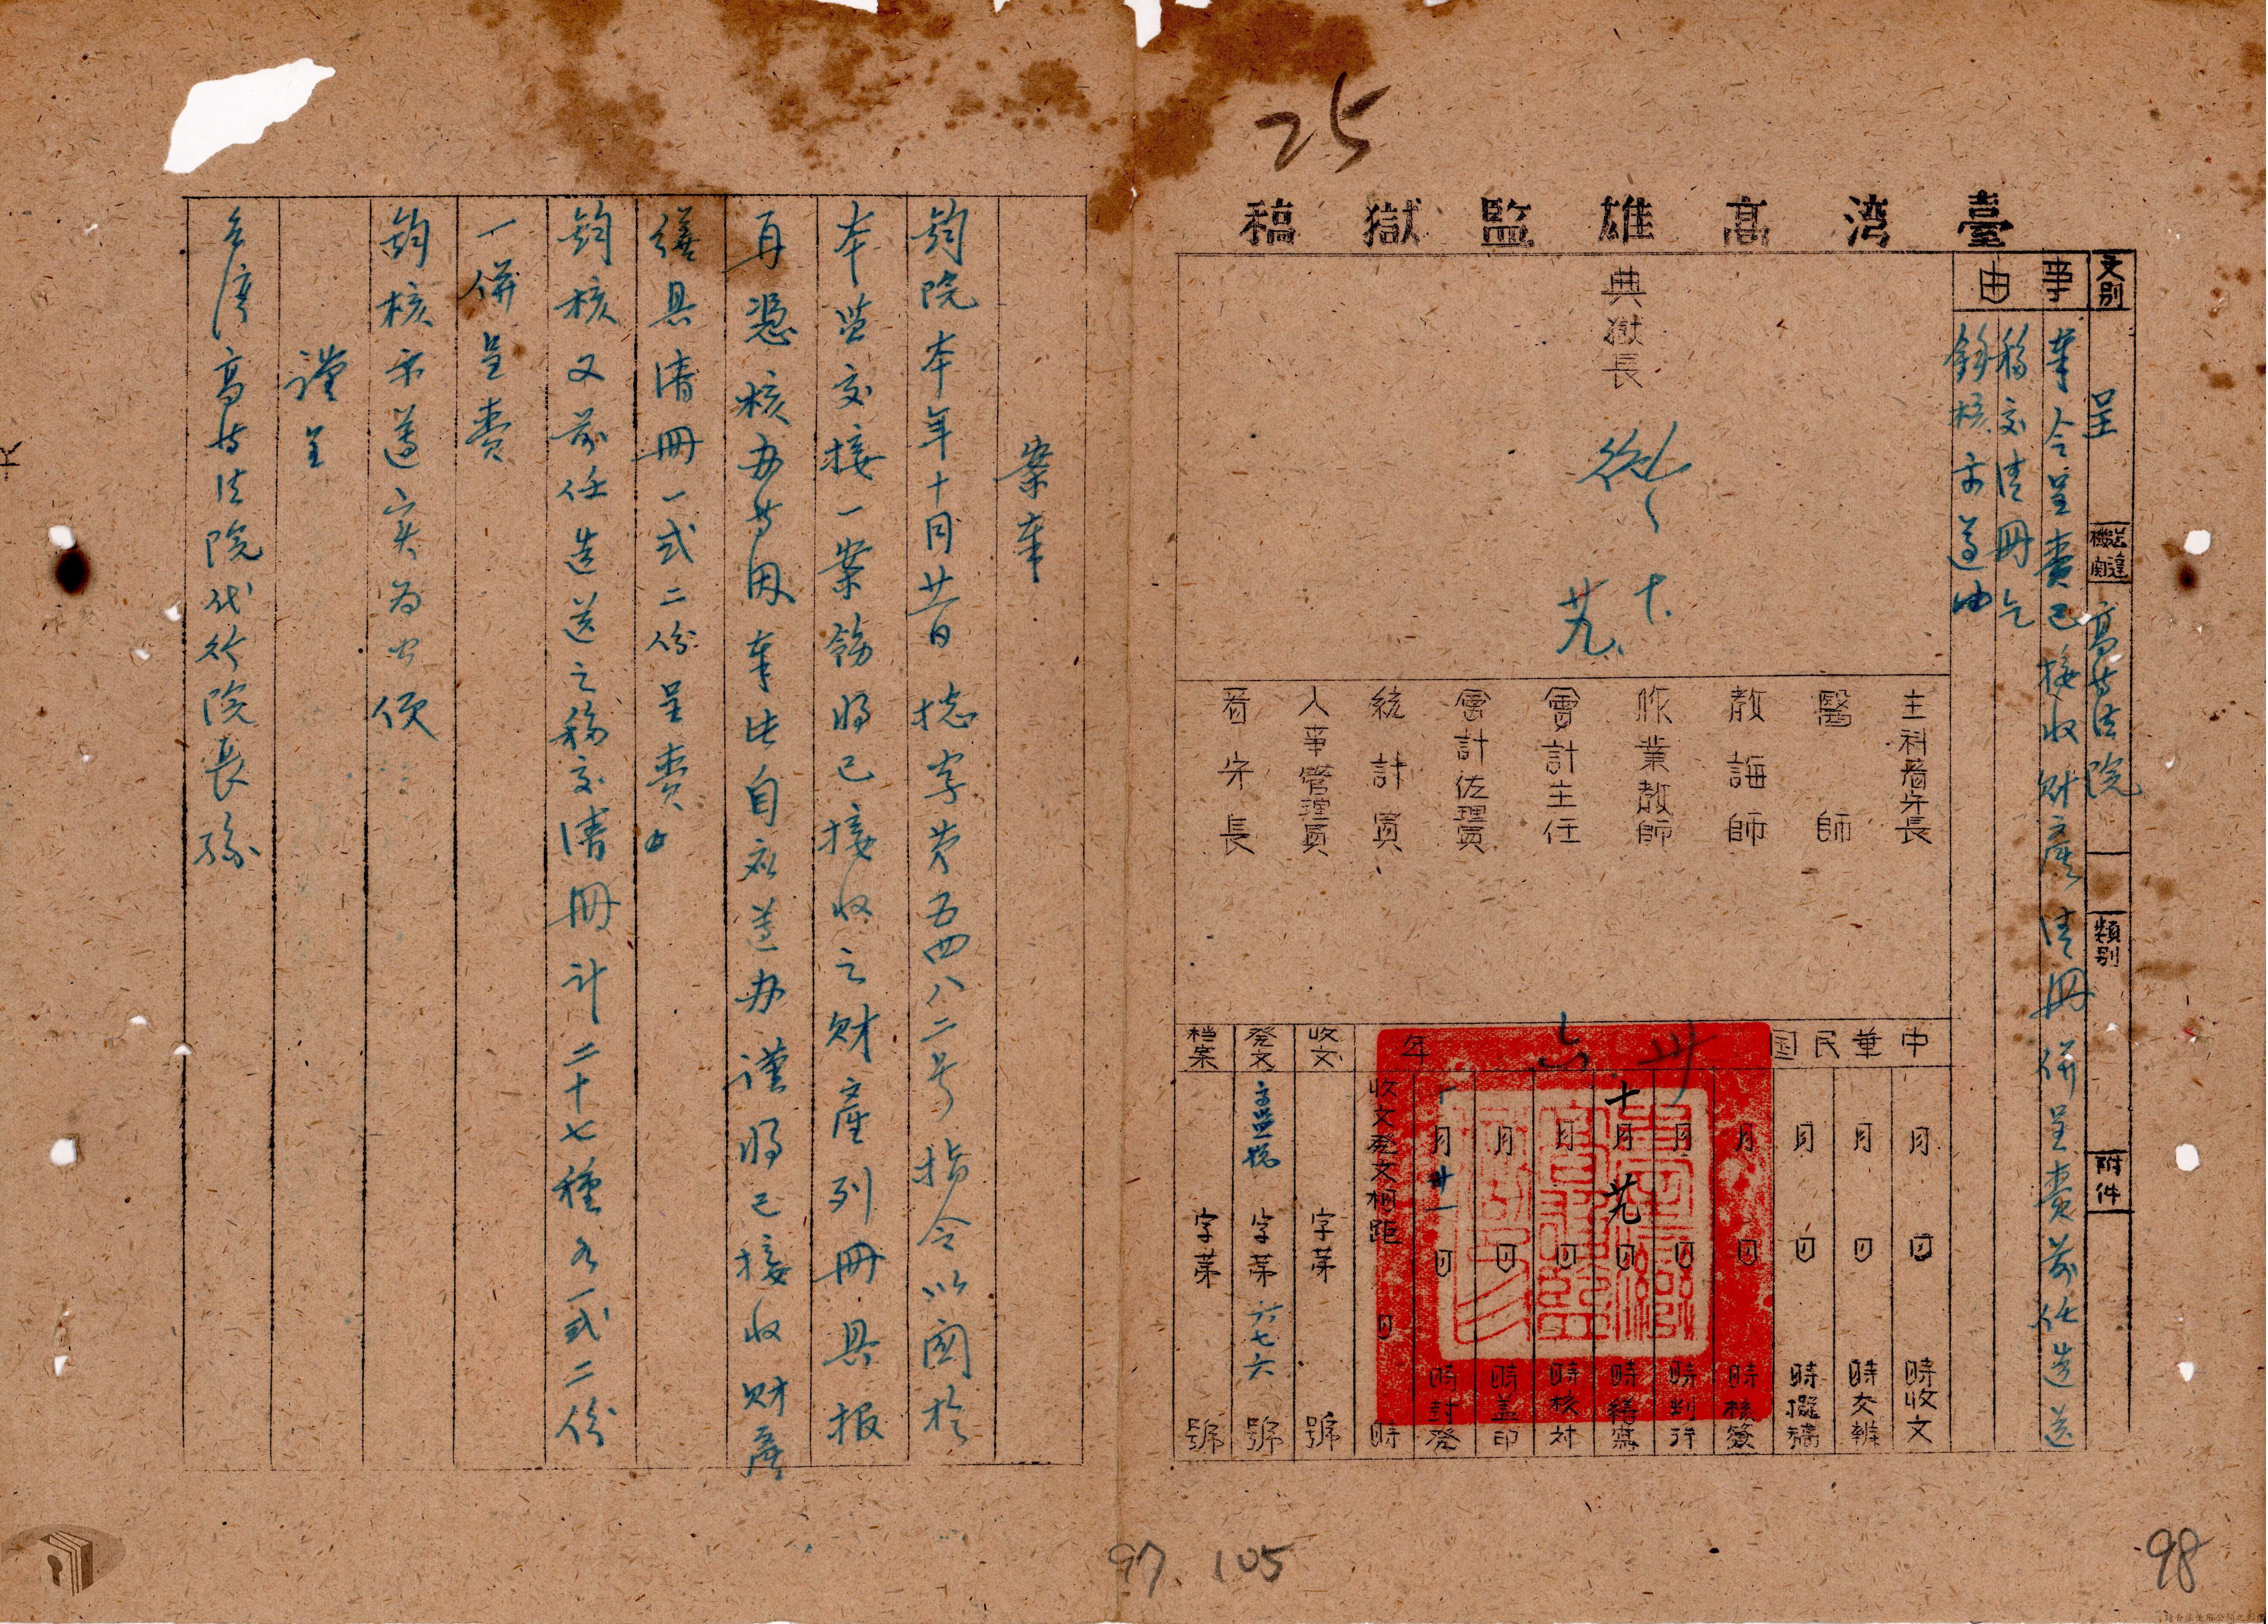 25
臺湾高雄監獄稿
文别
呈
送達機関
高等法院
類别
附件
事由
奉令呈賫已接收財產清冊併呈賫前任造送
移交清冊乞
鉴核示遵由
典獄長
十、
芄、
主科看守長
醫師
教誨師
作業教師
會計主任
會計佐理員
統計員
人事管理員
看守長
中華民国卅六年
月 日 時收文
月 日 時交辦
月 日 時擬稿
月 日 時核簽
月 日 時判行
十月 芄日 時繕寫
月 日 時核对
月 日 時盖印
十月卅一日 時封發
收文發文相距 日 時
收文 字第 號
發文 高監總字第六七六號
档案 字第 號
案奉
鈞院本年十月 日總字第五四八二号指令以関於
本监交接一案飭將已接收之財產列冊具报
再憑核办等因奉此自应遵办謹將已接收財產
繕具清冊一式二份呈賫
鈞核又前任造送之移交清冊計二十七種各一式二份
一併呈賫
鈞核示遵实为公便
謹呈
台湾高等法院代行院長孫
97
105
98